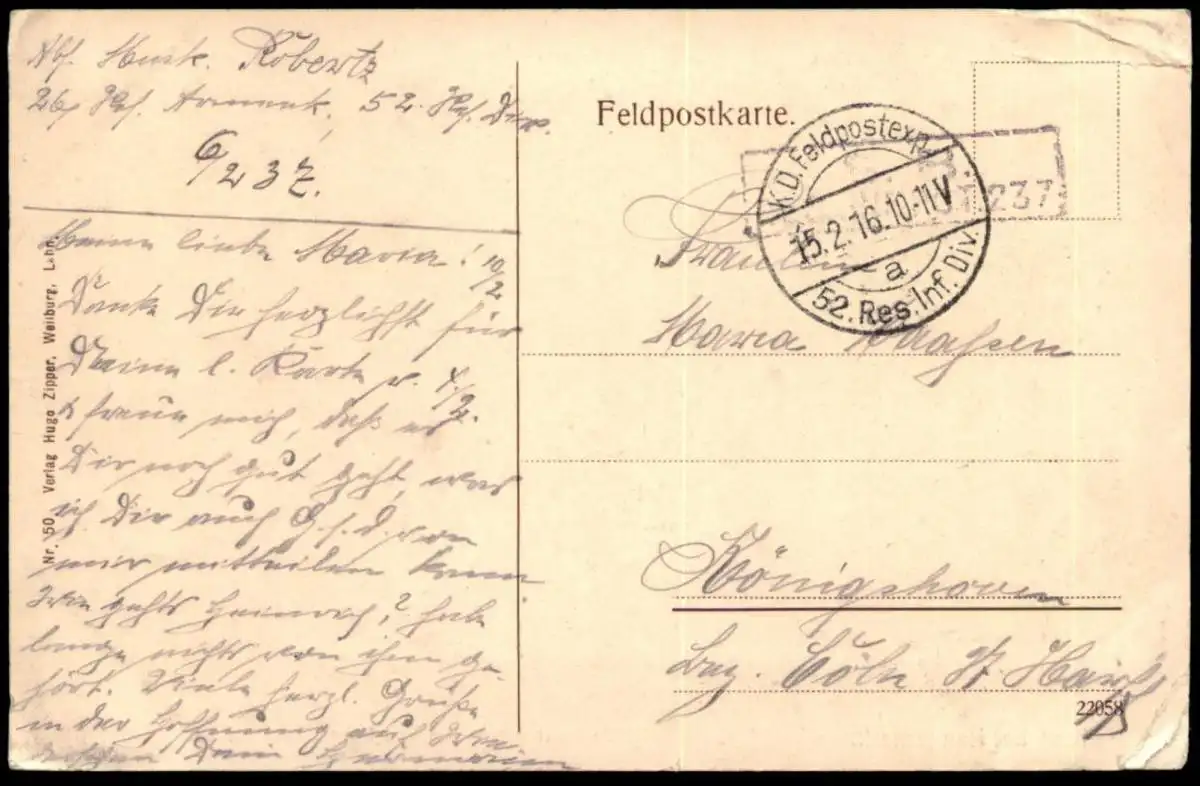 Abs. Musk. Robertz
26. Res. Armeek. 52. Res. Div.
6/237.
Meine liebe Maria! 10/2
Danke Dir herzlichst für
Deine l. Karte v. 4./2.
& freue mich, daß es
Dir noch gut geht, was
ich Dir auch G. s. d. von
mir mitteilen kann
Wie gehts Heinrich? habe
lange nichts von ihm ge-
hört. Viele herzl. Grüße
in der Hoffnung auf Wie-
dersehen Dein Hermann
Nr. 50 Verlag Hugo Zipper, Weilburg, Lahn.
Feldpostkarte.
K.D. Feldpostexp.
15.2.16.10-11V
a
52. Res. Inf. Div.
S. B.
237
Fräulein
Maria
Königshoven
Bez. Cöln
22058